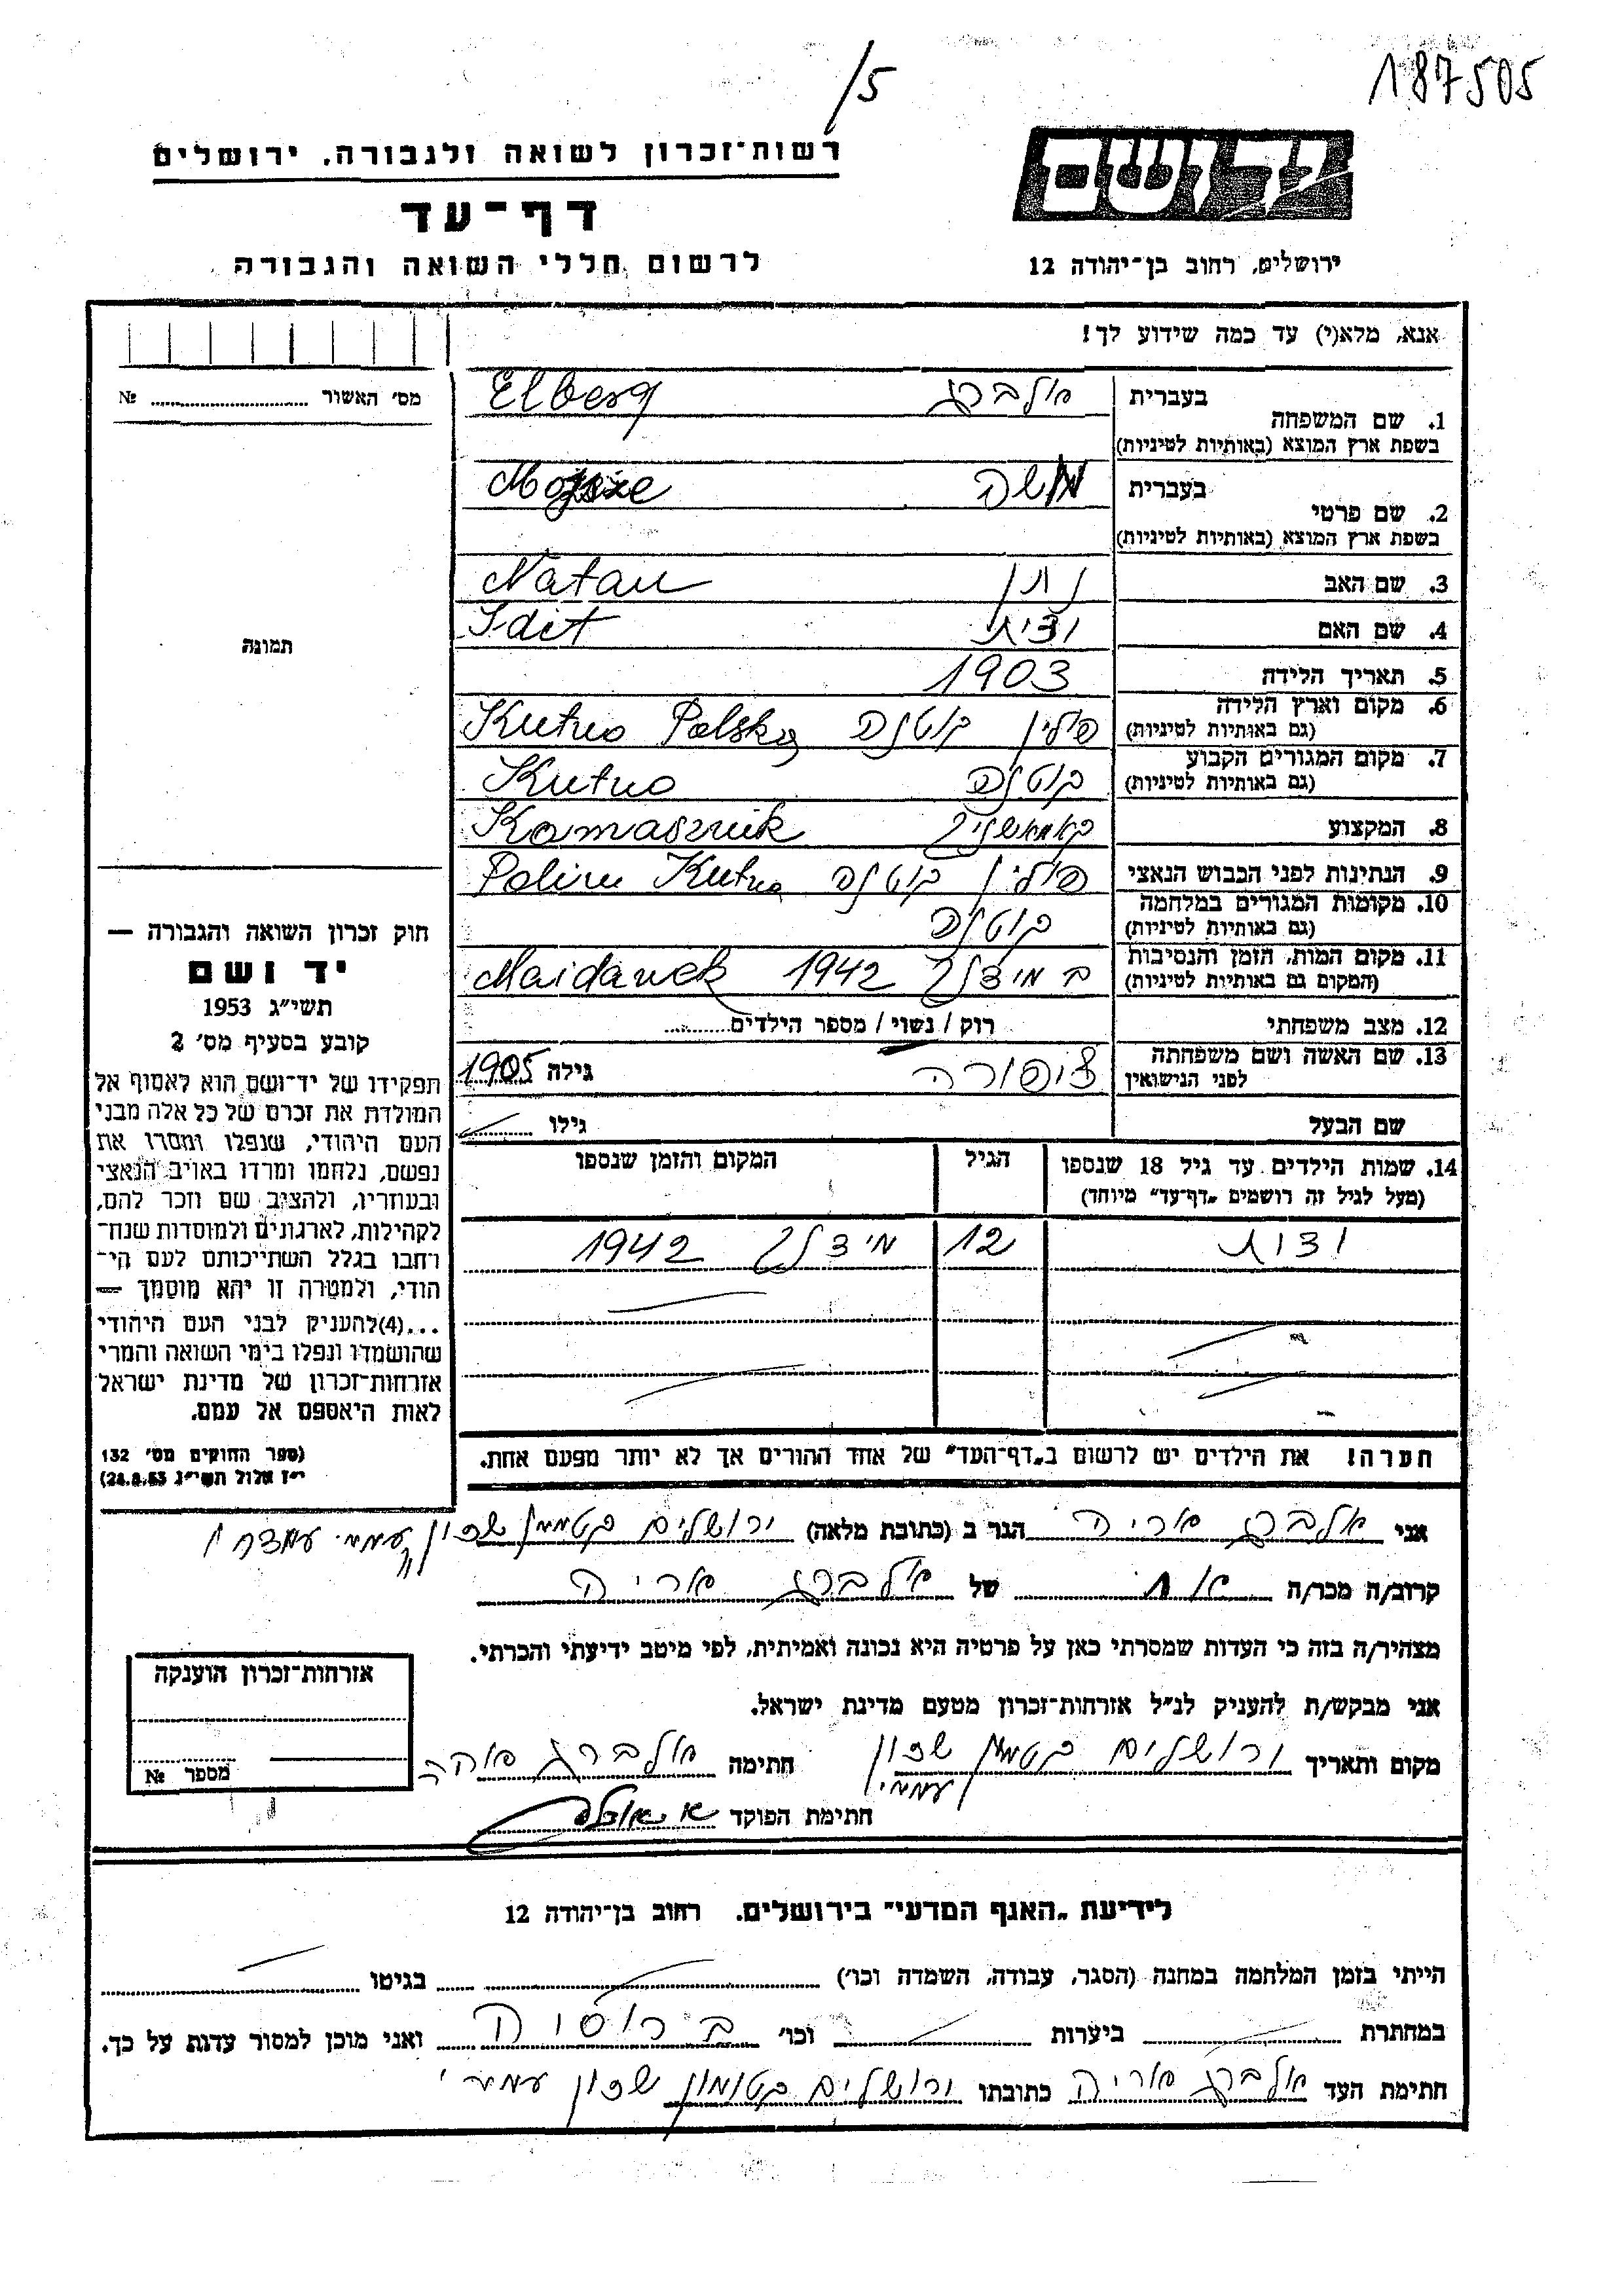 187505
/5
יד ושם
ירושלים, רחוב בן־יהודה 12
רשות־זכרון לשואה ולגבורה, ירושלים
דף־עד
לרשום חללי השואה והגבורה
אנא, מלא(י) עד כמה שידוע לך!
מס׳ האשור ........ №
תמונה
1. שם המשפחה בעברית אלברג Elberg
בשפת ארץ המוצא (באותיות לטיניות)
2. שם פרטי בעברית משה
בשפת ארץ המוצא (באותיות לטיניות)
3. שם האב נתן Natan
4. שם האם Idit
5. תאריך הלידה 1903
6. מקום וארץ הלידה פולין קוטנה Kutno Polska
(גם באותיות לטיניות)
7. מקום המגורים הקבוע קוטנה Kutno
(גם באותיות לטיניות)
8. המקצוע קאמאשניק Kamasznik
9. הנתינות לפני הכבוש הנאצי פולין קוטנה Polin Kutno
10. מקומות המגורים במלחמה קוטנה
(גם באותיות לטיניות)
11. מקום המות, הזמן והנסיבות במידנק 1942 Maidanek
(המקום גם באותיות לטיניות)
12. מצב משפחתי רוק / נשוי / מספר הילדים........
13. שם האשה ושם משפחתה ציפורה גילה 1905
לפני הנישואין
שם הבעל גילו ........
14. שמות הילדים עד גיל 18 שנספו הגיל המקום והזמן שנספו
(מעל לגיל זה רושמים „דף־עד״ מיוחד)
12 מידנק 1942
הערה! את הילדים יש לרשום ב„דף־העד״ של אחד ההורים אך לא יותר מפעם אחת.
חוק זכרון השואה והגבורה —
יד ושם
תשי״ג 1953
קובע בסעיף מס׳ 2
תפקידו של יד־ושם הוא לאסוף אל
המולדת את זכרם של כל אלה מבני
העם היהודי, שנפלו ומסרו את
נפשם, נלחמו ומרדו באויב הנאצי
ובעוזריו, ולהציב שם וזכר להם,
לקהילות, לארגונים ולמוסדות שנח־
רחבו בגלל השתייכותם לעם הי־
הודי, ולמטרה זו יהא מוסמך —
...(4)להעניק לבני העם היהודי
שהושמדו ונפלו בימי השואה והמרי
אזרחות־זכרון של מדינת ישראל
לאות היאספם אל עמם.
(ספר החוקים מס׳ 132
י״ז אלול תשי״ג 28.8.53)
אני אלברג אריה הגר ב (כתובת מלאה) ירושלים קטמון שכון עממי
קרוב/ה מכר/ה אח של אלברג אריה
מצהיר/ה בזה כי העדות שמסרתי כאן על פרטיה היא נכונה ואמיתית, לפי מיטב ידיעתי והכרתי.
אני מבקש/ת להעניק לנ״ל אזרחות־זכרון מטעם מדינת ישראל.
מקום ותאריך ירושלים קטמון שכון עממי חתימה אלברג אריה
חתימת הפוקד
אזרחות־זכרון הוענקה
מספר №
לידיעת „האגף המדעי״ בירושלים. רחוב בן־יהודה 12
הייתי בזמן המלחמה במחנה (הסגר, עבודה, השמדה וכו׳) ........ בגיטו ........
במחתרת ........ ביערות ........ וכו׳ ברוסיה ואני מוכן למסור עדות על כך.
חתימת העד אלברג אריה כתובתו ירושלים קטמון שכון עממי